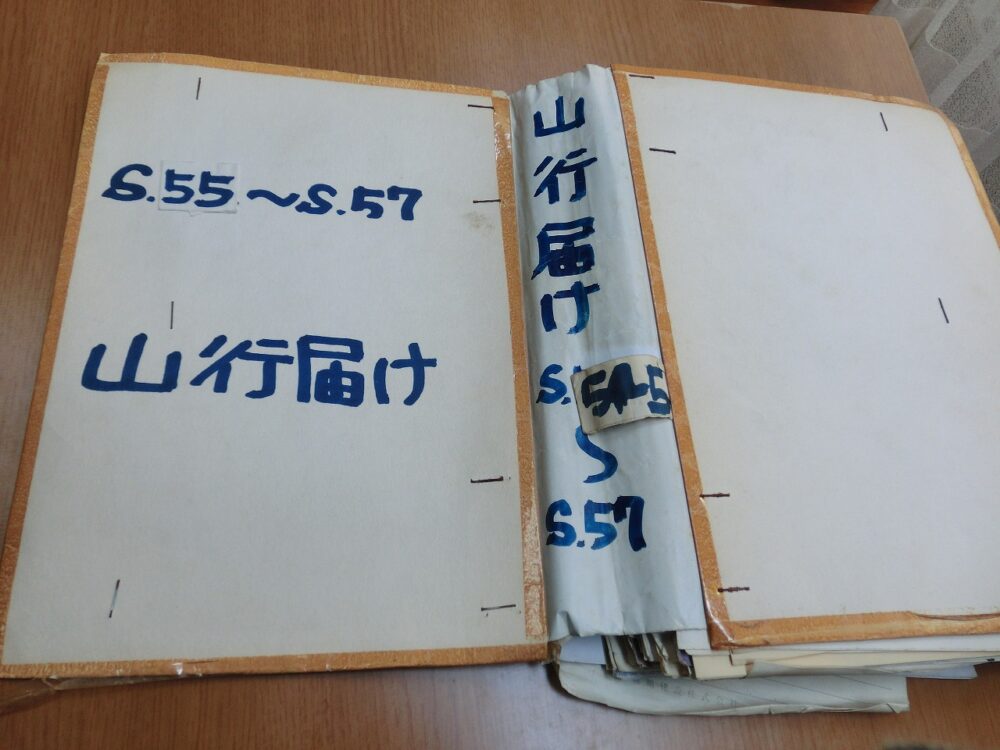 S.55～S.57
山行届け
山行届け
S.
～
S.57